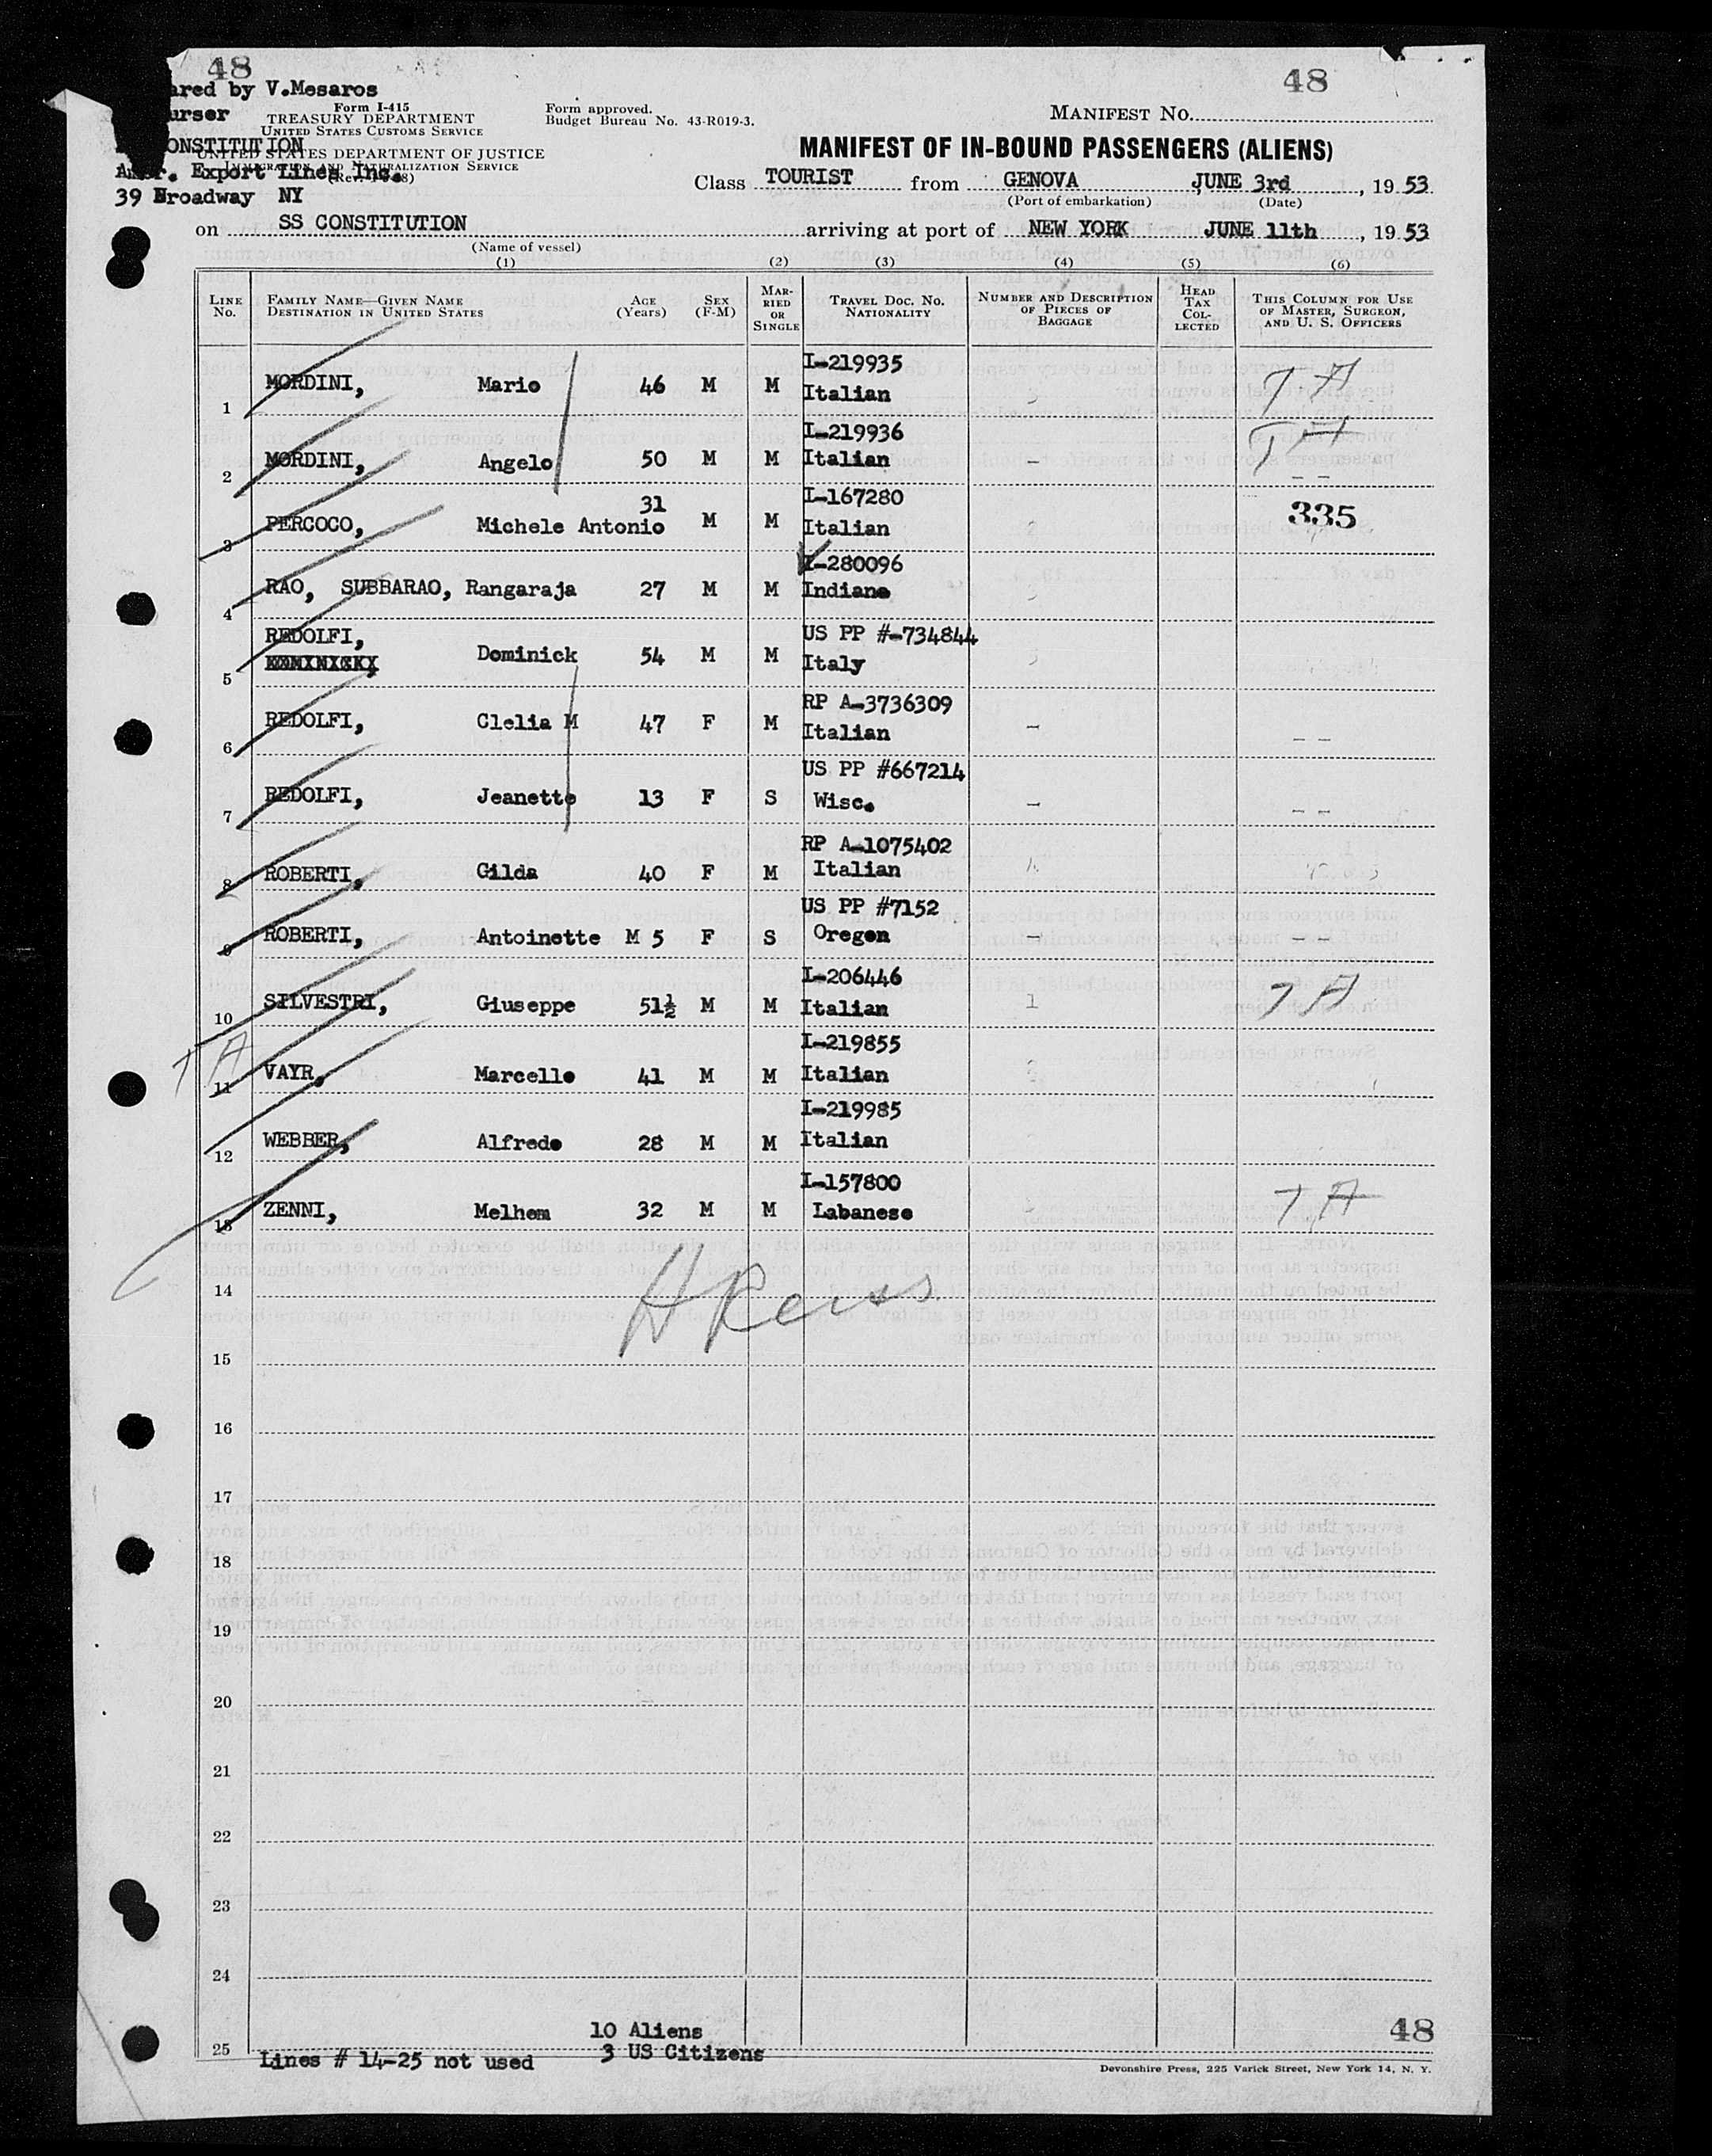 48
48
ared by V.Mesaros
urser
Form I-415
TREASURY DEPARTMENT
UNITED STATES CUSTOMS SERVICE
Form approved.
Budget Bureau No. 43-R019-3.
MANIFEST NO.
ONSTITUTION
UNITED STATES DEPARTMENT OF JUSTICE
IMMIGRATION AND NATURALIZATION SERVICE
Amer. Export Lines Inc.
39 Broadway NY
MANIFEST OF IN-BOUND PASSENGERS (ALIENS)
Class TOURIST from GENOVA JUNE 3rd, 19 53
(Port of embarkation) (Date)
on SS CONSTITUTION arriving at port of NEW YORK JUNE 11th, 19 53
(Name of vessel)
(1) (2) (3) (4) (5) (6)
LINE No. FAMILY NAME—GIVEN NAME DESTINATION IN UNITED STATES AGE (Years) SEX (F-M) MARRIED OR SINGLE TRAVEL DOC. NO. NATIONALITY NUMBER AND DESCRIPTION OF PIECES OF BAGGAGE HEAD TAX COLLECTED THIS COLUMN FOR USE OF MASTER, SURGEON, AND U. S. OFFICERS
1 MORDINI, Mario 46 M M I-219935 Italian T A
2 MORDINI, Angelo 50 M M I-219936 Italian - T A - -
3 PERCOCO, Michele Antonio 31 M M I-167280 Italian 2 335
4 RAO, SUBBARAO, Rangaraja 27 M M I-280096 Indian
5 REDOLFI, Dominick 54 M M US PP #-734844 Italy
6 REDOLFI, Clelia M 47 F M RP A-3736309 Italian - - -
7 REDOLFI, Jeanette 13 F S US PP #667214 Wisc. - - -
8 ROBERTI, Gilda 40 F M RP A-1075402 Italian
9 ROBERTI, Antoinette M 5 F S US PP #7152 Oregon - - -
10 SILVESTRI, Giuseppe 51½ M M I-206446 Italian 1 T A
T A
11 VAYR, Marcello 41 M M I-219855 Italian
12 WEBBER, Alfredo 28 M M I-219985 Italian
13 ZENNI, Melhem 32 M M I-157800 Labanese T A
14
15
16
17
18
19
20
21
22
23
24
25
10 Aliens
3 US Citizens
Lines # 14-25 not used
48
Devonshire Press, 225 Varick Street, New York 14, N. Y.